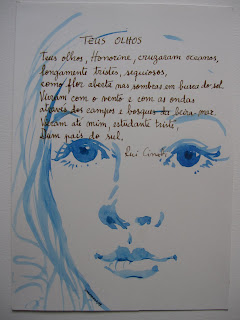 TEUS OLHOS
Teus olhos, Honorine, cruzaram oceanos,
longamente tristes, sequiosos,
como flor aberta nas sombras em busca do sol.
Vieram com o vento e com as ondas
através dos campos e bosques da beira-mar.
Vieram até mim, estudante triste,
dum país do sul.
Rui Cinatti